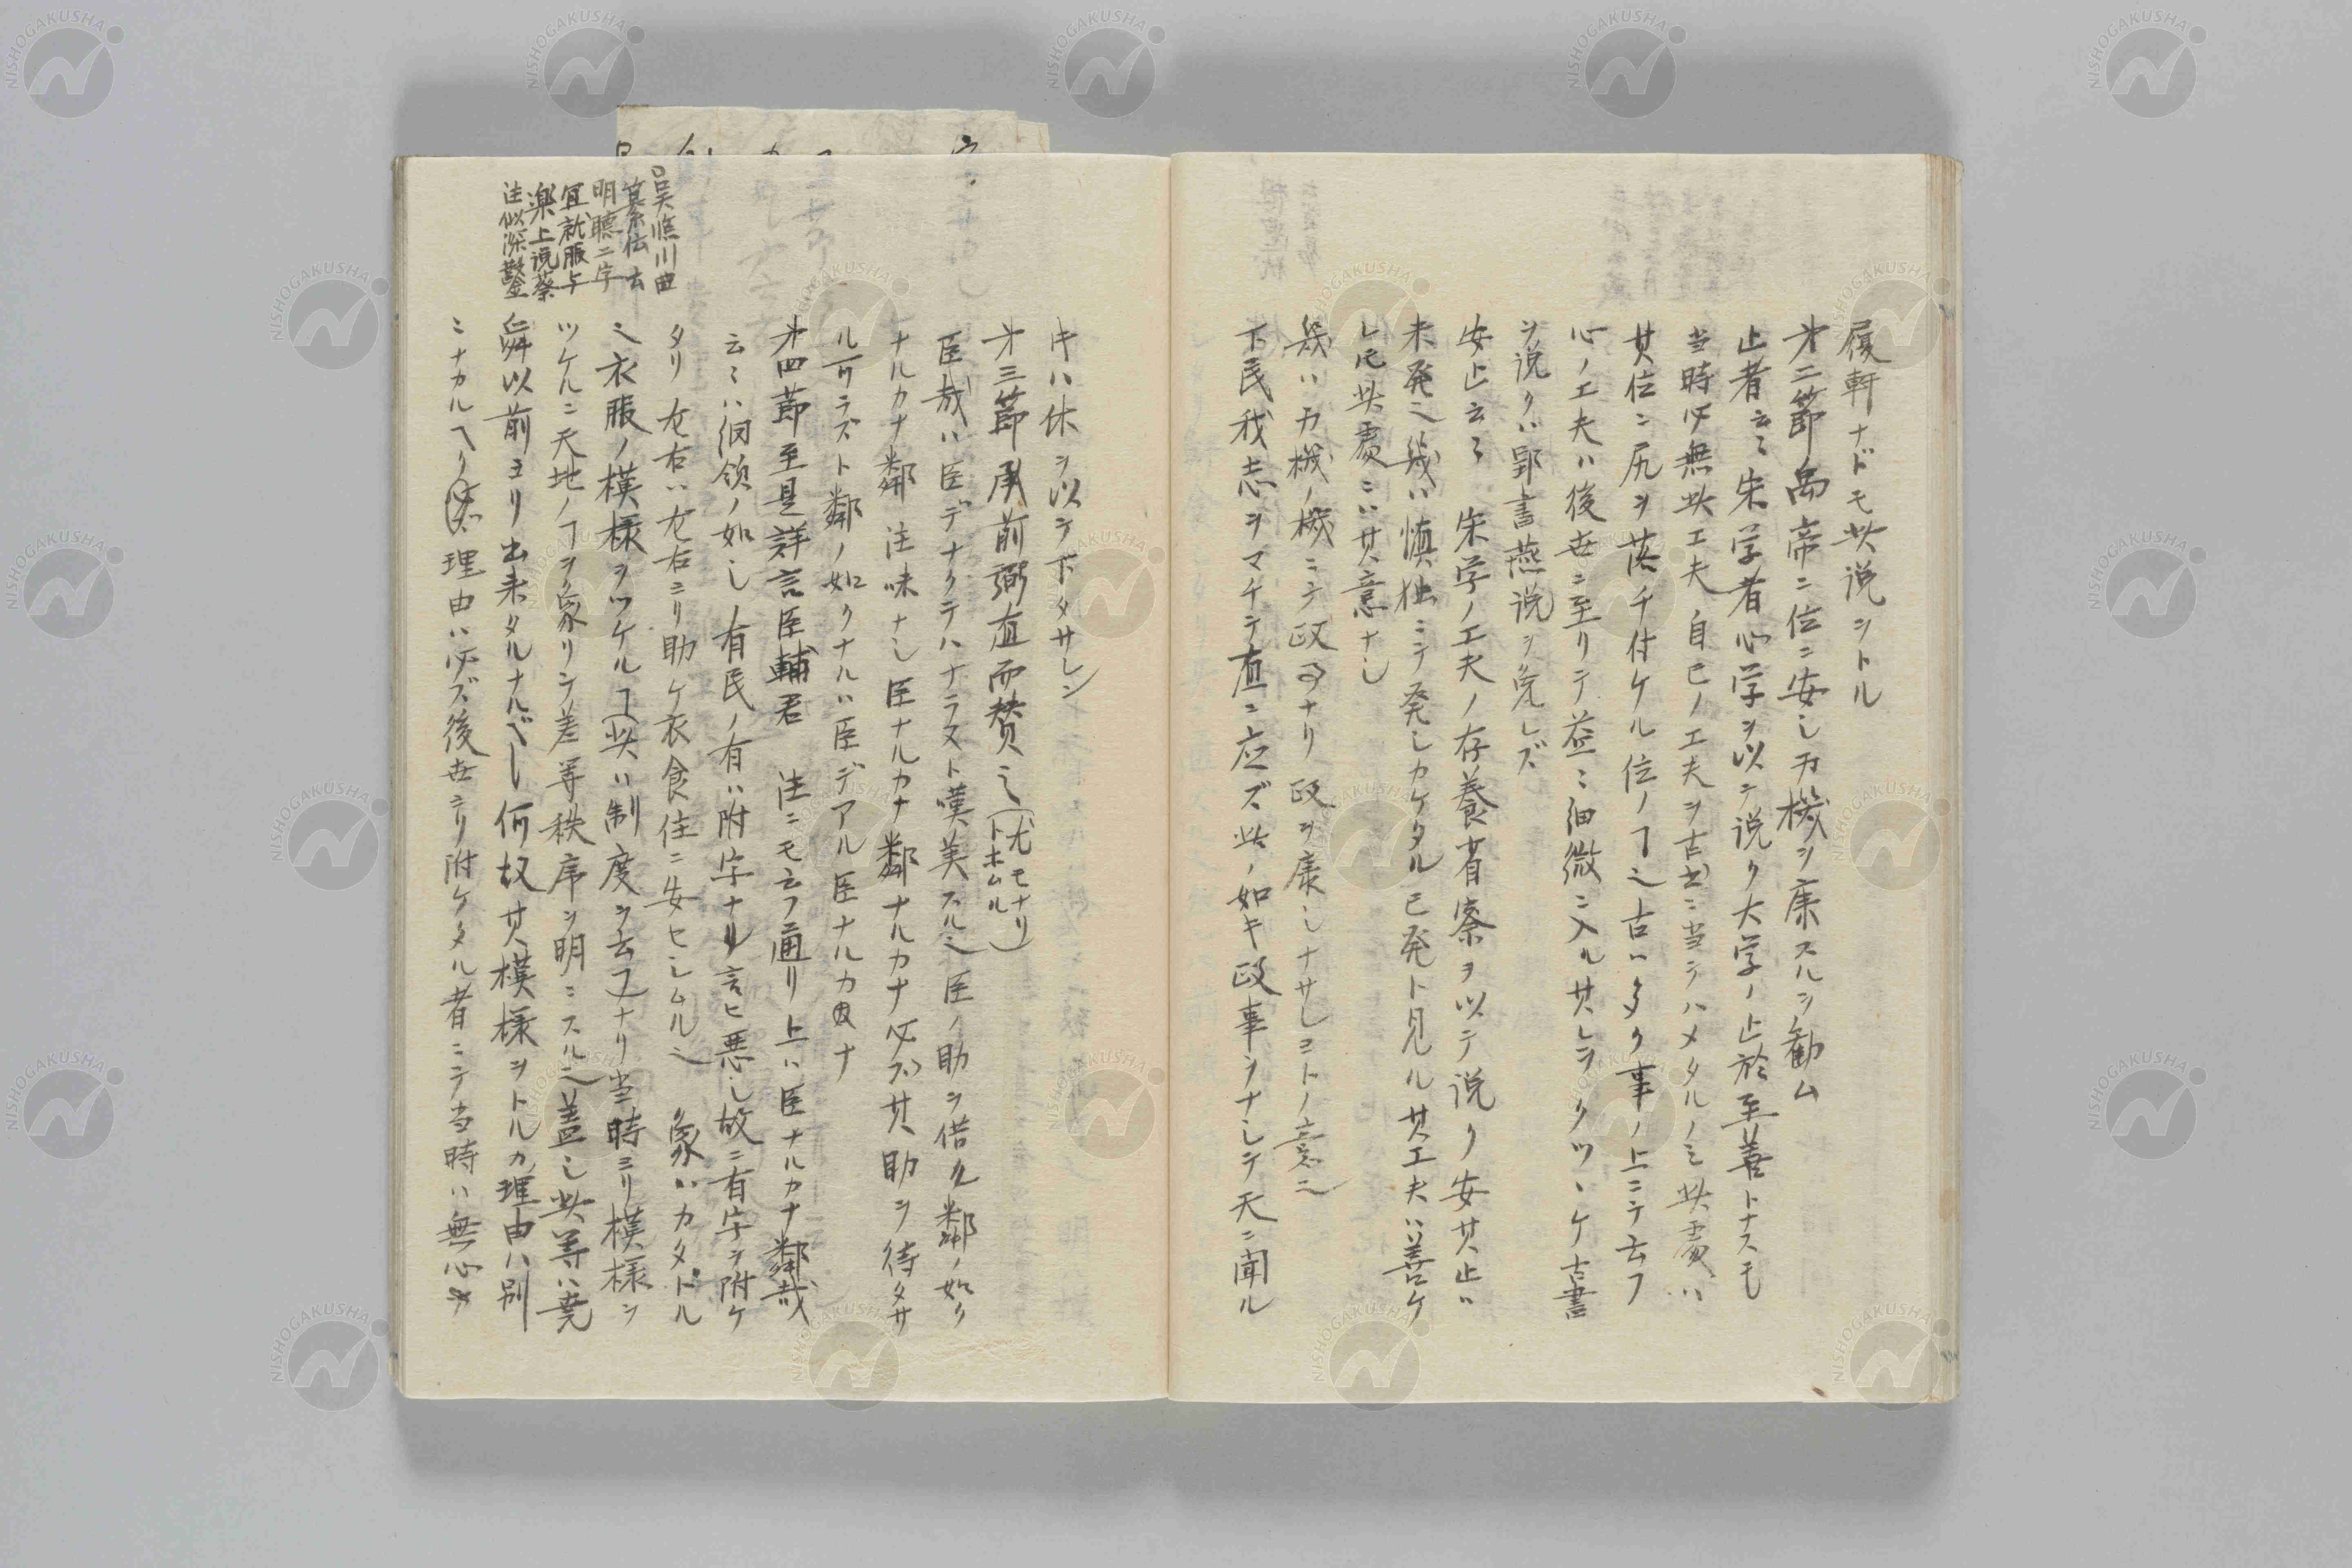 履軒ナドモ此説ヲトル
才二節禹帝ニ位ニ安シ万機ヲ康スルヲ勧ム
止者云〻朱学者心学ヲ以テ説ク大学ノ止於至善トナスモ
当時必無此工夫自己ノ工夫ヲ古書ニ当テハメタルノミ此処ハ
其位ニ尻ヲ落チ付ケル位ノヿ也古ハ多ク事ノ上ニテ云フ
心ノ工夫ハ後世ニ至リテ益〻細微ニ入ル其レラクツヽケ古書
ヲ説クハ郢書燕説ヲ免レズ
安止云〻朱学ノ工夫ノ存養省察ヲ以テ説ク安其止ハ
未発也幾ハ慎独ニテ発シカケタル已発ト見ル其工夫ハ善ケ
レ𪜈此処ニハ其意ナシ
幾ハ万機ノ機ニテ政事ナリ政ヲ康シナサレヨトノ意也
下民我志ヲマチテ直ニ応ズ此ノ如キ政事ヲナシテ天ニ聞ル
キハ休ヲ以テ下タサレン
才三節承前弼直而賛之(尤モナリトホムル)
臣哉ハ臣デナクテハナラヌト嘆美スル也臣ノ助ヲ借ル鄰ノ如ク
ナルカナ鄰注味ナシ臣ナルカナ鄰ナルカナ必ズ其助ヲ待タサ
ルヿラズト鄰ノ如クナルハ臣デアル臣ナルカナ
才四節至是詳言臣輔君 注ニモ云フ通リ上ハ臣ナルカナ鄰哉
云〻ハ綱領ノ如シ有民ノ有ハ附字ナリ言ヒ悪シ故ニ有字ヲ附ケ
タリ左右ハ左右ヨリ助ゲ衣食住ニ安セシムル也 象ハカタドル
也衣服ノ模様ヲツケルヿ(此ハ制度ヲ云フ)ナリ当時ヨリ模様ヲ
ツケルニ天地ノヿヲ象リテ差等秩序ヲ明ニスル也蓋シ此等ハ堯
舜以前ヨリ出来タルナルベシ何故其模様ヲトルカ理由ハ別
ニナカルヘク理由ハ必ズ後世ヨリ附ケタル者ニテ当時ハ無心ナ
呉臨川曰
纂伝云
明聴二字
宜就服与
楽上説蔡
注似深鑿